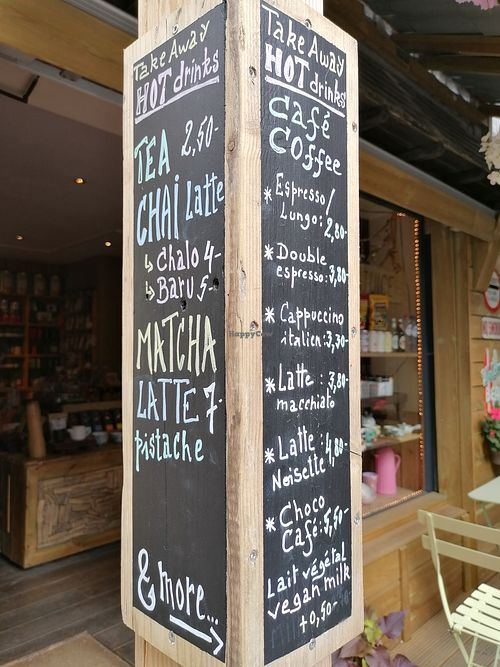 Take Away
HOT drinks
TEA 2,50-
CHAI Latte
↳ Chalo 4-
↳ Baru 5-
MATCHA
LATTE 7-
pistache
& more...
Take Away
HOT drinks
Café
Coffee
* Espresso/
Lungo: 2,80-
* Double
espresso: 3,80-
* Cappuccino
italien: 3,30-
* Latte : 3,80-
macchiato
* Latte : 4,80-
Noisette
* Choco
Café: 5,50-
Lait végétal
vegan milk
+0,50-